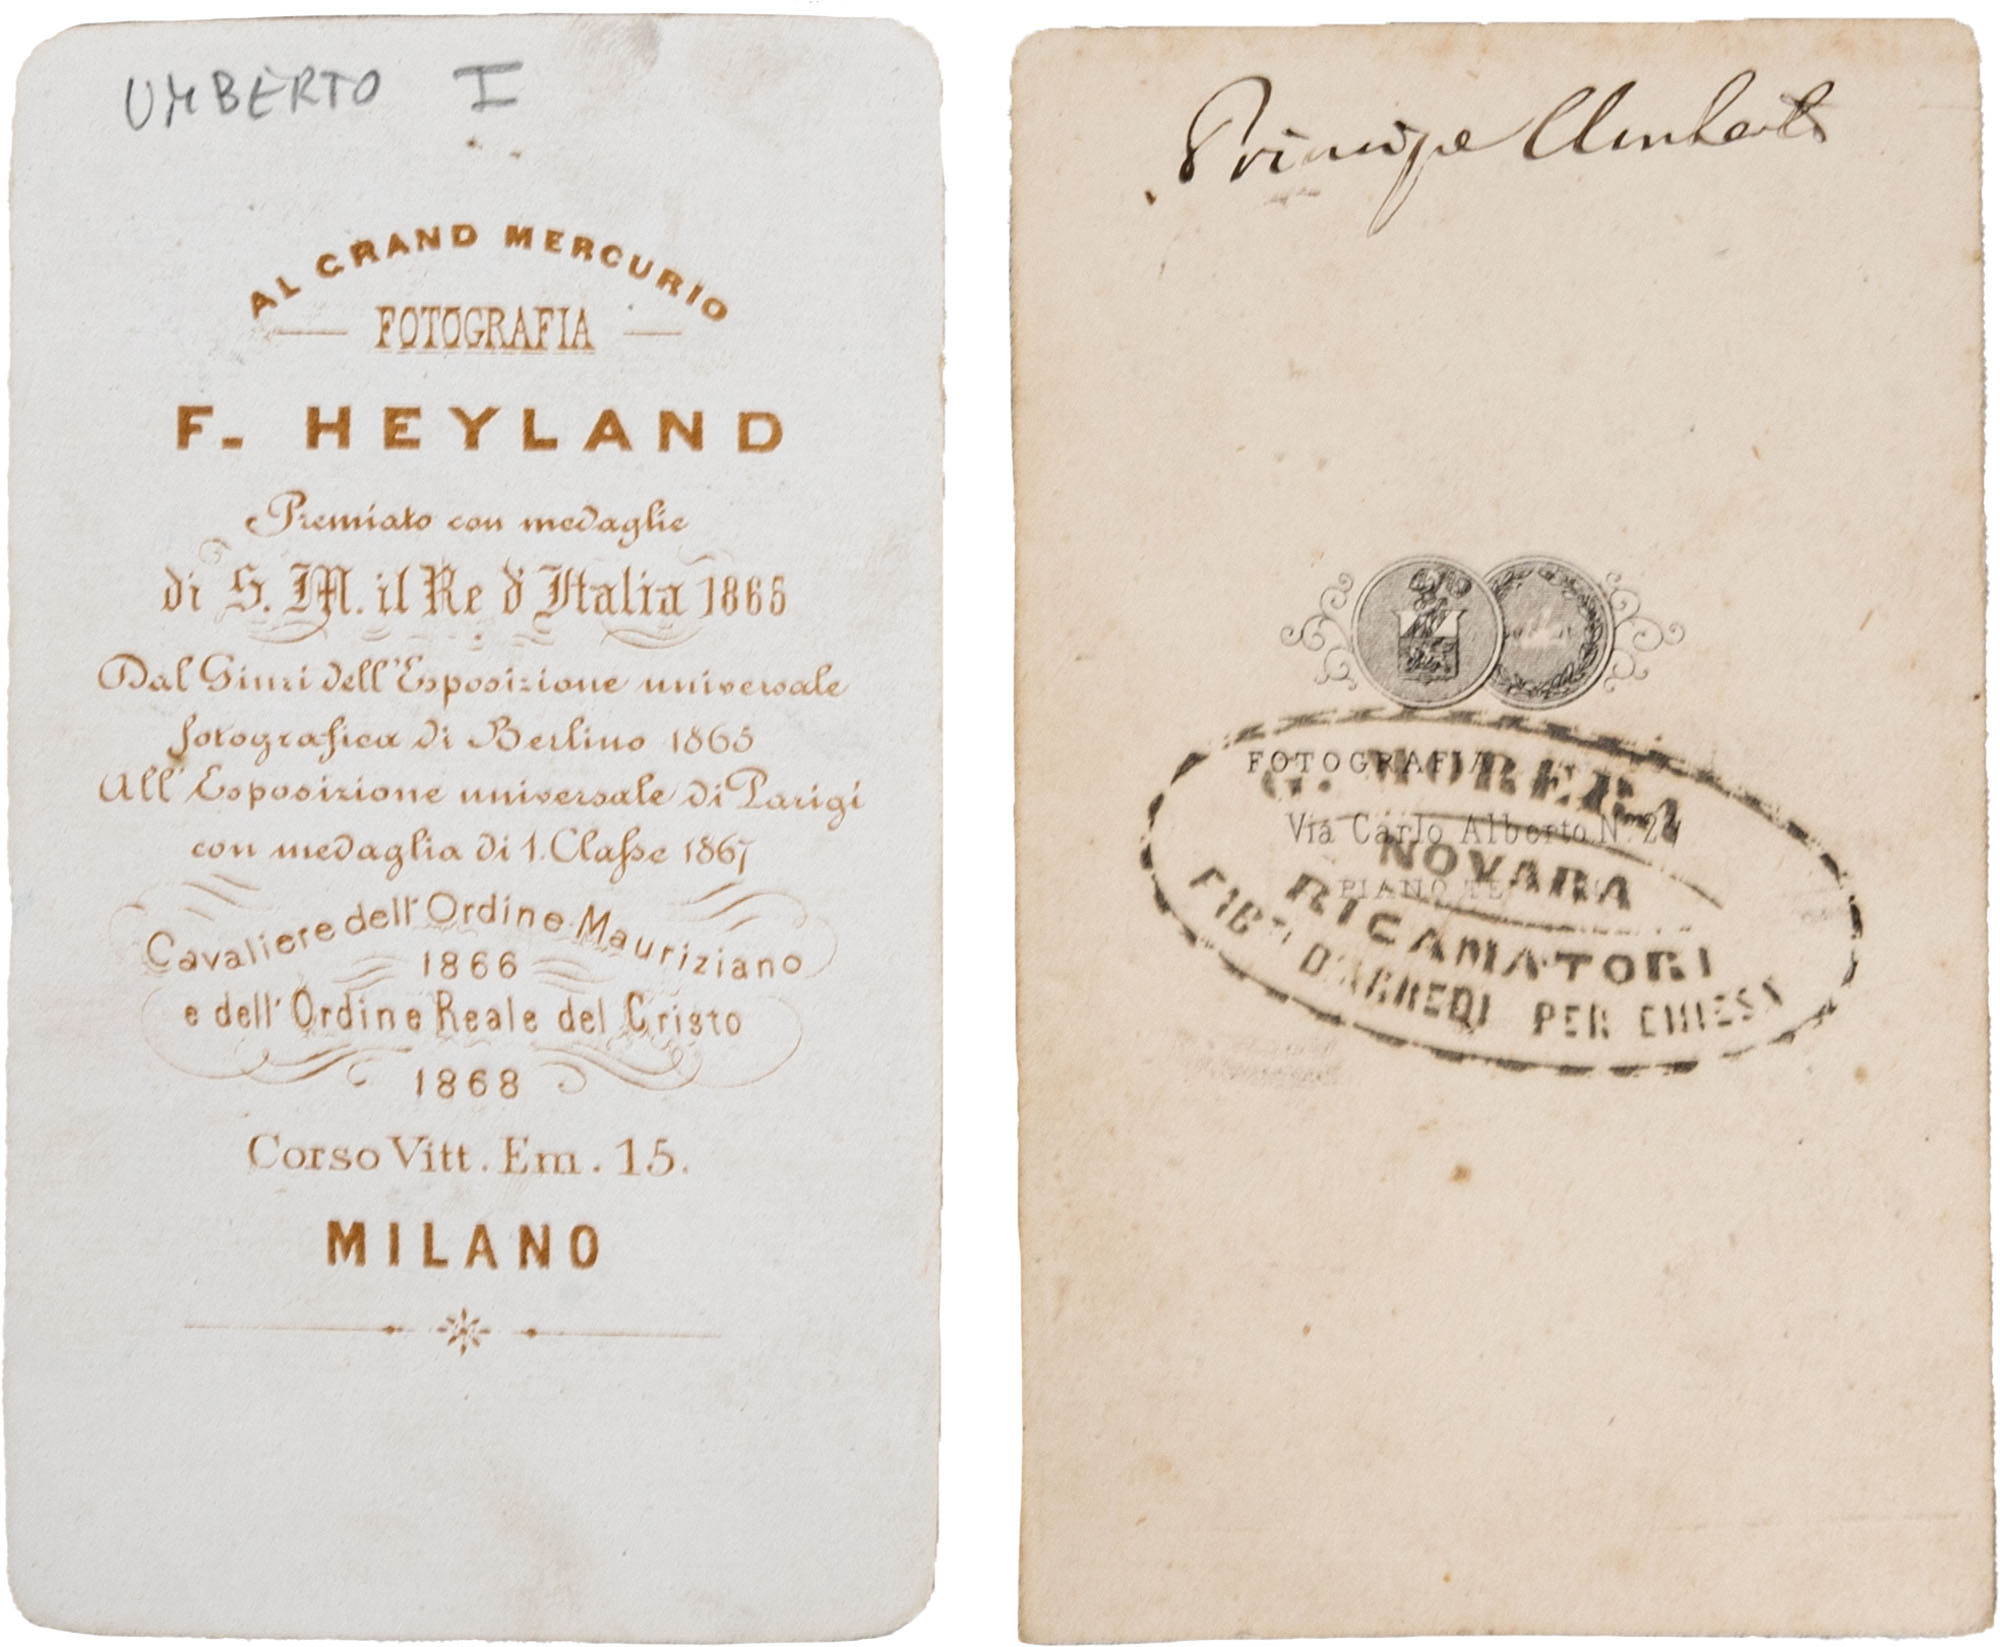 UMBERTO I
AL GRAND MERCURIO
FOTOGRAFIA
F. HEYLAND
Premiato con medaglie
di S. M. il Re d'Italia 1865
Dal Giurì dell'Esposizione universale
fotografica di Berlino 1865
All'Esposizione universale di Parigi
con medaglia di 1. Classe 1867
Cavaliere dell'Ordine Mauriziano
1866
e dell'Ordine Reale del Cristo
1868
Corso Vitt. Em. 15.
MILANO
Principe Umberto
FOTOGRAFIA
Via Carlo Alberto N. 2
PIANO
G. MORERA
NOVARA
RICAMATORI
D'ARREDI PER CHIESA